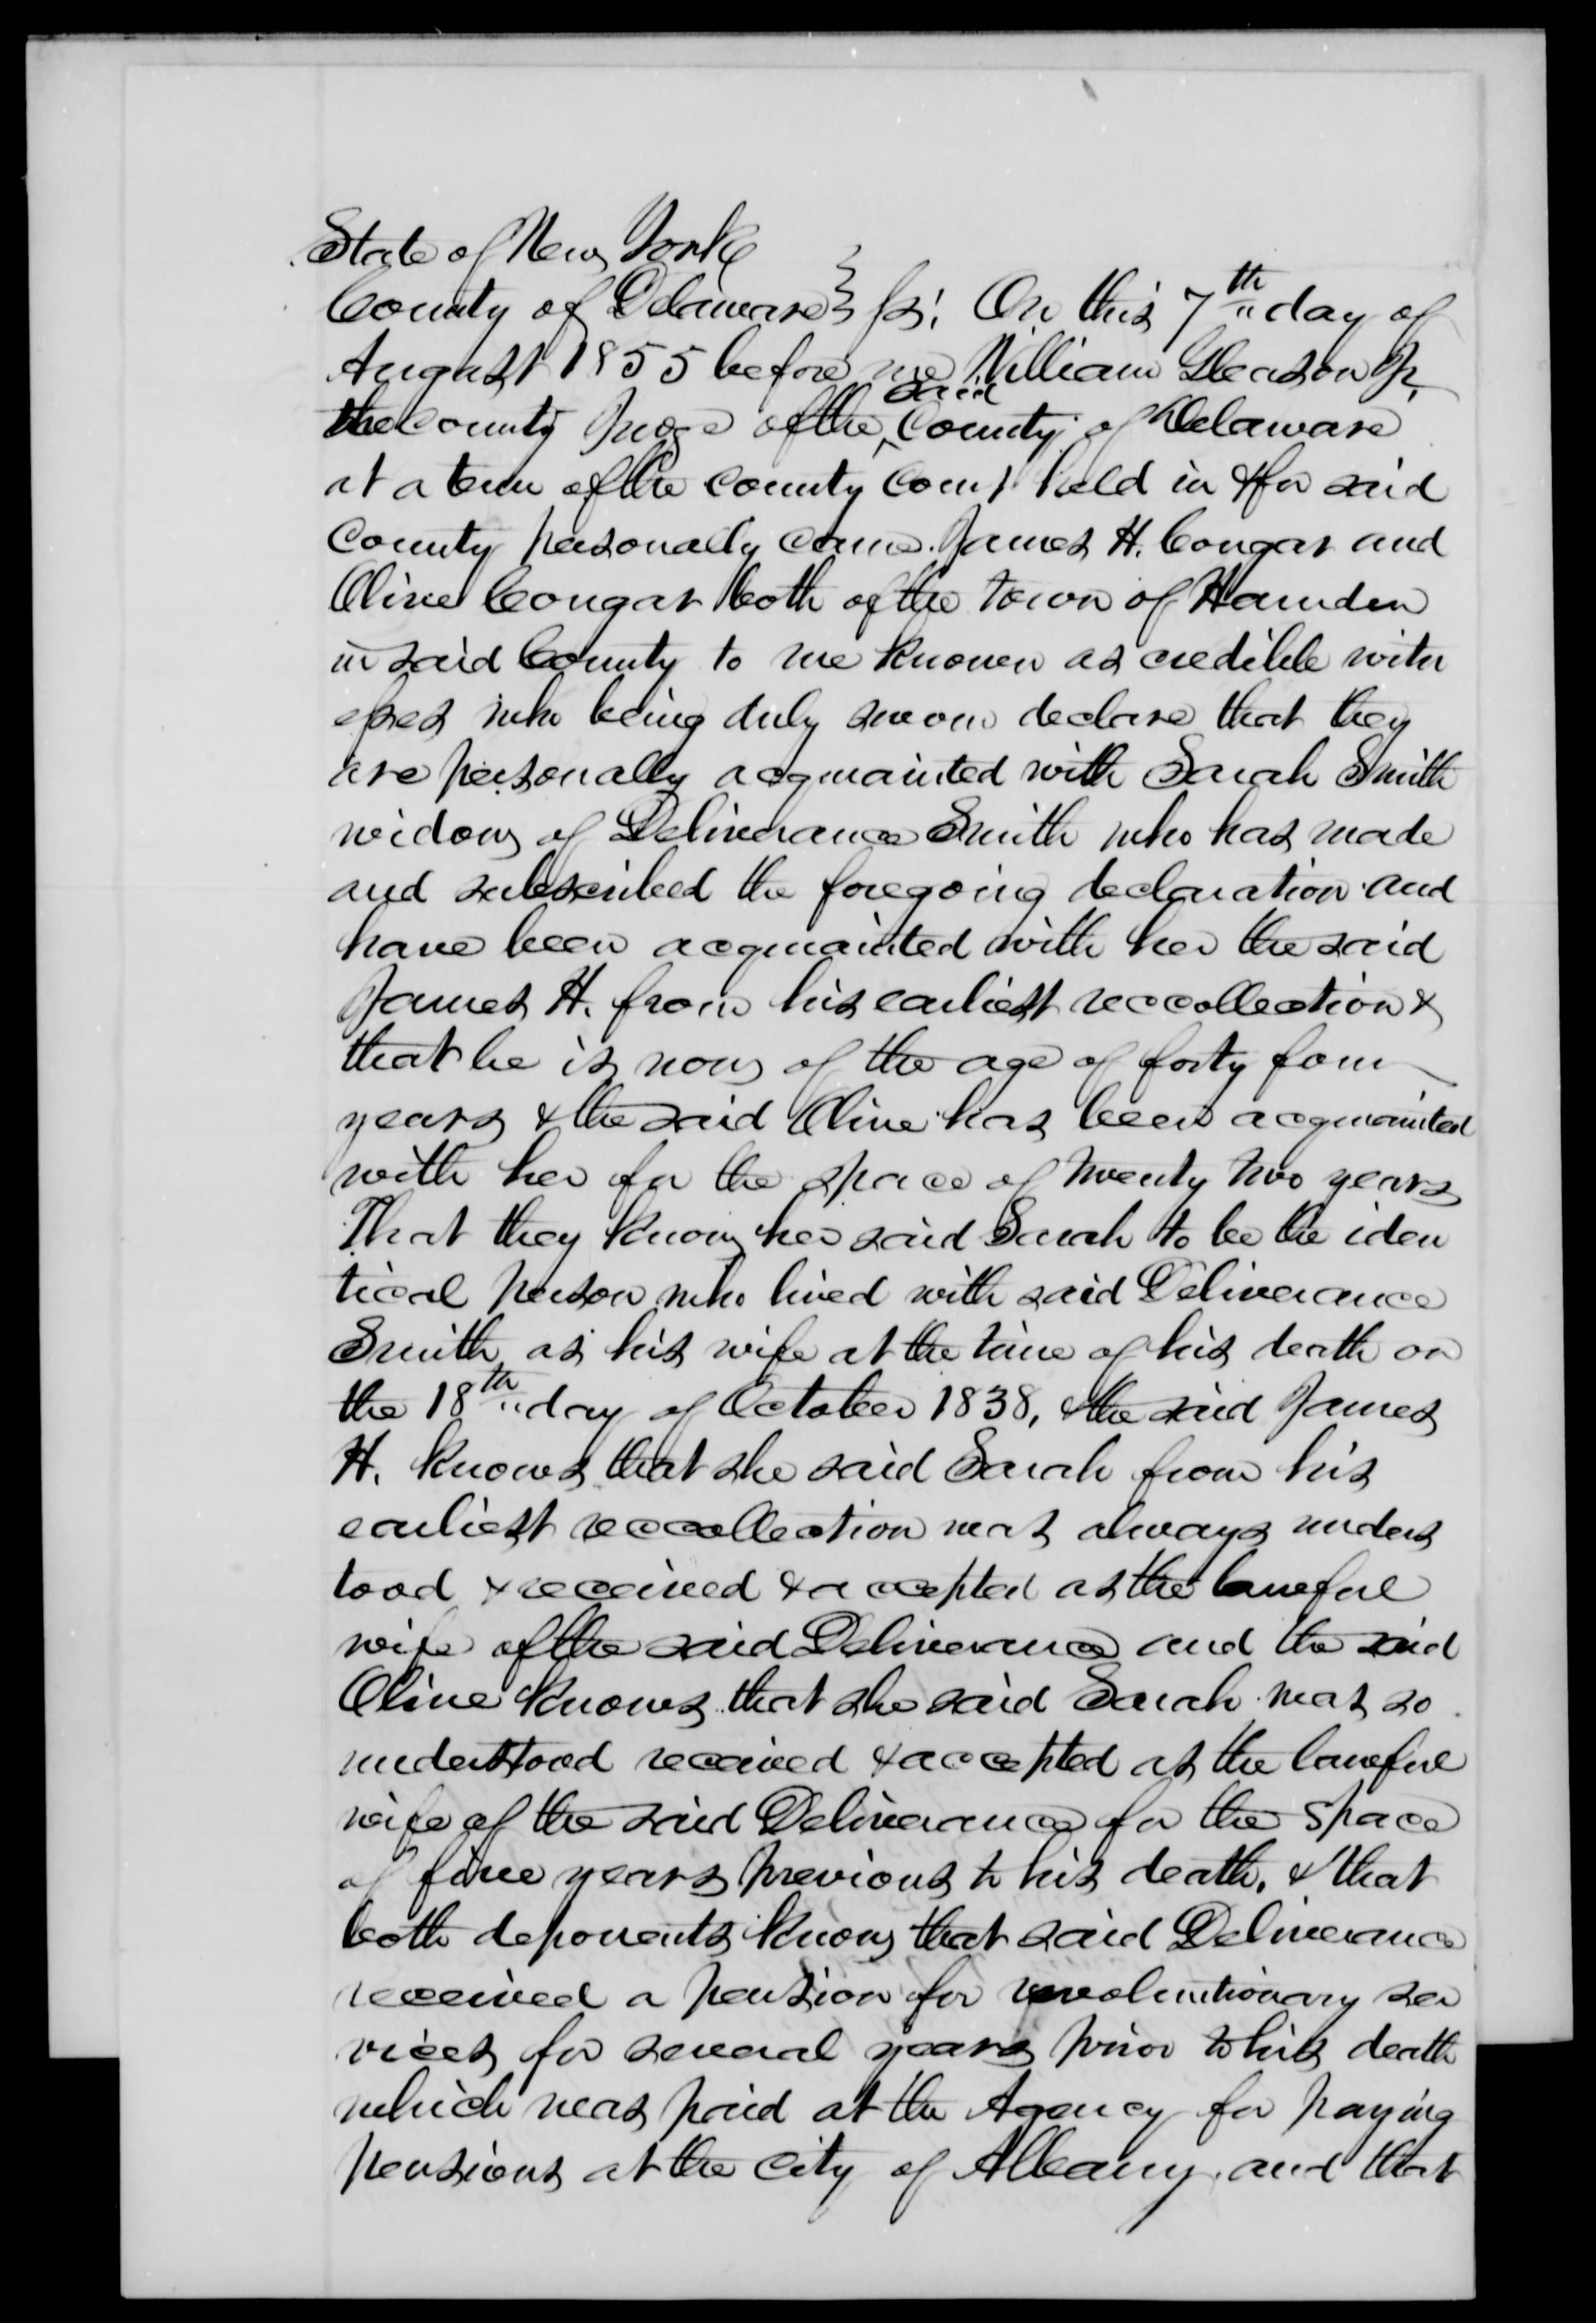 State of New York
County of Delaware } ss: On this 7th day of
August 1855 before me William Gleason Jr.
the County Judge of the said County of Delaware
at a term of the County Court held in & for said
County personally came James H. Congar and
Olive Congar both of the town of Hamden
in said County to me known as credible witn
esses who being duly sworn declare that they
are personally acquainted with Sarah Smith
widow of Deliverance Smith who has made
and subscribed the foregoing declaration and
have been acquainted with her the said
James H. from his earliest reccollection &
that he is now of the age of forty four
years & the said Olive has been acquainted
with her for the space of twenty two years
That they know her said Sarah to be the iden
tical person who lived with said Deliverance
Smith as his wife at the time of his death on
the 18th day of October 1838, & the said James
H. knows that she said Sarah from his
earliest reccollection was always unders
tood & received & accepted as the lawful
wife of the said Deliverance and the said
Olive knows that she said Sarah was so
understood received & accepted as the lawful
wife of the said Deliverance for the space
of five years previous to his death, & that
both deponents know that said Deliverance
received a pension for revolutionary ser
vices for several years prior to his death
which was paid at the Agency for paying
pensions at the City of Albany, and that